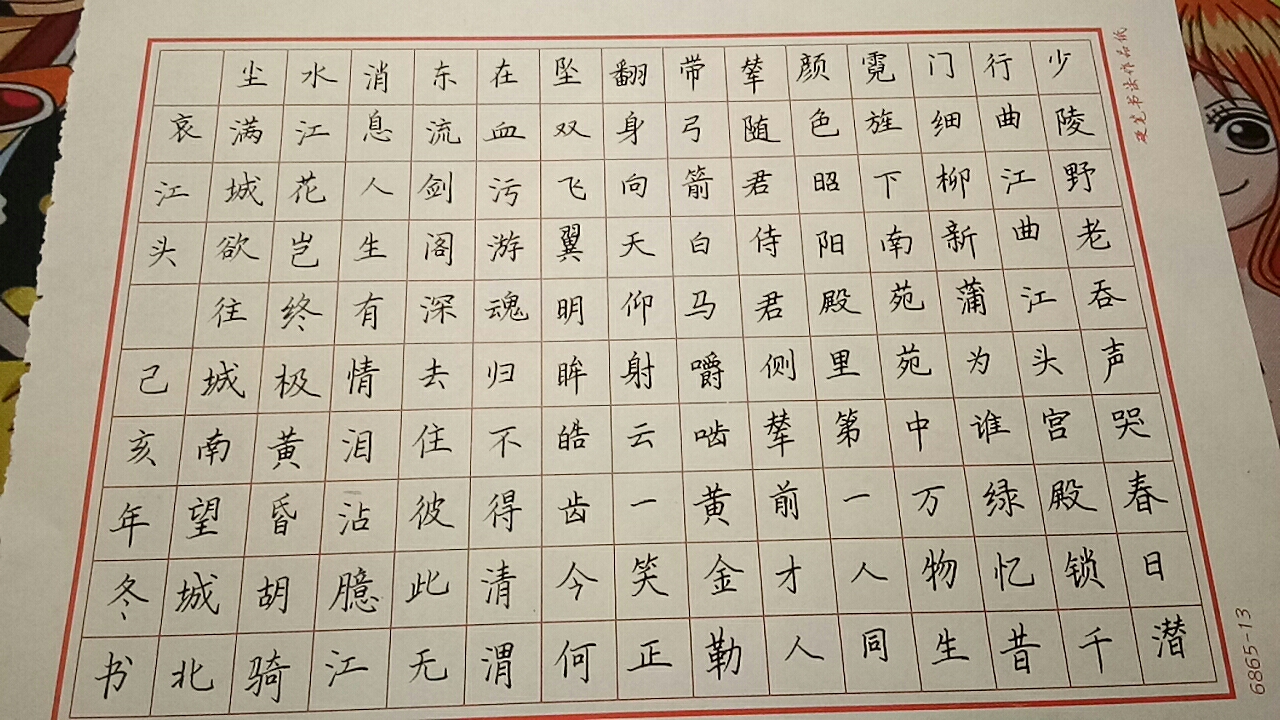 少陵野老吞声哭春日潜
行曲江曲江头宫殿锁千
门细柳新蒲为谁绿忆昔
霓旌下南苑苑中万物生
颜色昭阳殿里第一人同
辇随君侍君侧辇前才人
带弓箭白马嚼啮黄金勒
翻身向天仰射云一笑正
坠双飞翼明眸皓齿今何
在血污游魂归不得清渭
东流剑阁深去住彼此无
消息人生有情泪沾臆江
水江花岂终极黄昏胡骑
尘满城欲往城南望城北
哀江头 己亥年冬书
硬笔书法作品纸
6865-13